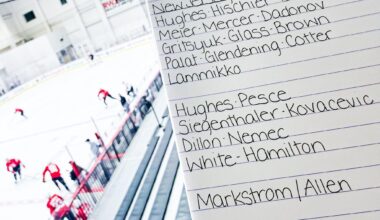 New Je
Hughes·Hischier·
Meier·Mercer·Dadonov
Gritsyuk·Glass·Brown
Palat·Glendening·Cotter
Lammikko
Hughes·Pesce
Siegenthaler·Kovacevic
Dillon·Nemec
White·Hamilton
Markstrom/Allen